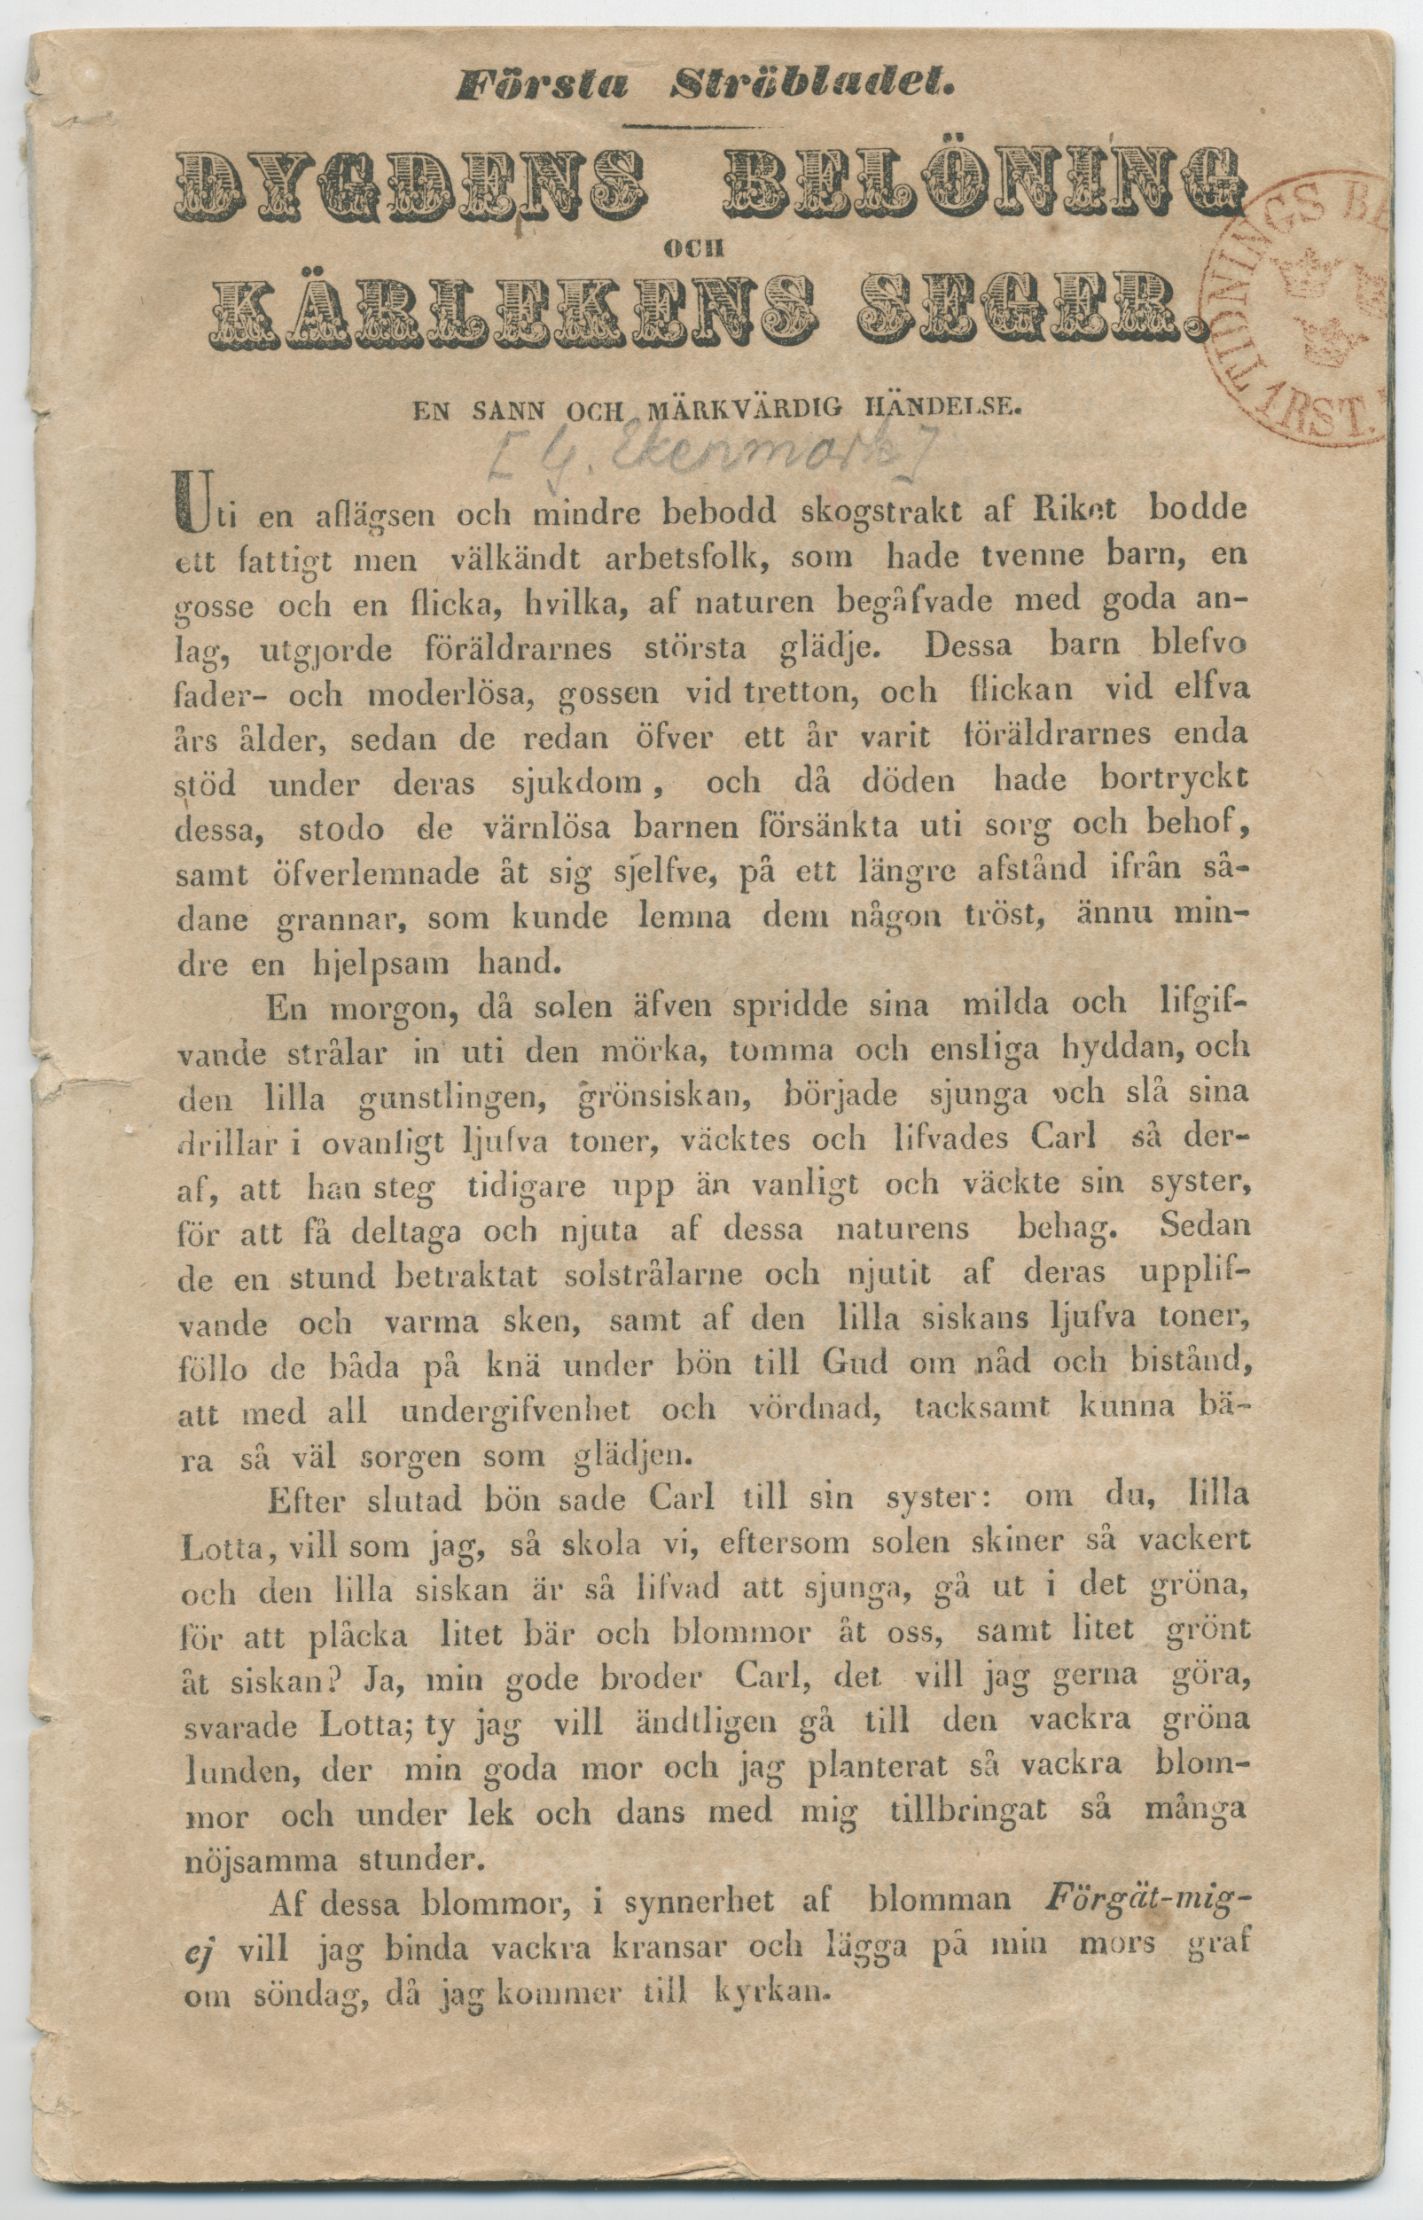 Första Ströbladet.
DYGDENS BELÖNING
OCH
KÄRLEKENS SEGER.
TIDNINGS BE
1 RST.
EN SANN OCH MÄRKVÄRDIG HÄNDELSE.
[G. Ekenmark]
Uti en aflägsen och mindre bebodd skogstrakt af Riket bodde
ett fattigt men välkändt arbetsfolk, som hade tvenne barn, en
gosse och en flicka, hvilka, af naturen begåfvade med goda an-
lag, utgjorde föräldrarnes största glädje. Dessa barn blefvo
fader- och moderlösa, gossen vid tretton, och flickan vid elfva
års ålder, sedan de redan öfver ett år varit föräldrarnes enda
stöd under deras sjukdom, och då döden hade bortryckt
dessa, stodo de värnlösa barnen försänkta uti sorg och behof,
samt öfverlemnade åt sig sjelfve, på ett längre afstånd ifrån så-
dane grannar, som kunde lemna dem någon tröst, ännu min-
dre en hjelpsam hand.
En morgon, då solen äfven spridde sina milda och lifgif-
vande strålar in uti den mörka, tomma och ensliga hyddan, och
den lilla gunstlingen, grönsiskan, började sjunga och slå sina
drillar i ovanligt ljufva toner, väcktes och lifvades Carl så der-
af, att han steg tidigare upp än vanligt och väckte sin syster,
för att få deltaga och njuta af dessa naturens behag. Sedan
de en stund betraktat solstrålarne och njutit af deras upplif-
vande och varma sken, samt af den lilla siskans ljufva toner,
föllo de båda på knä under bön till Gud om nåd och bistånd,
att med all undergifvenhet och vördnad, tacksamt kunna bä-
ra så väl sorgen som glädjen.
Efter slutad bön sade Carl till sin syster: om du, lilla
Lotta, vill som jag, så skola vi, eftersom solen skiner så vackert
och den lilla siskan är så lifvad att sjunga, gå ut i det gröna,
för att plåcka litet bär och blommor åt oss, samt litet grönt
åt siskan? Ja, min gode broder Carl, det vill jag gerna göra,
svarade Lotta; ty jag vill ändtligen gå till den vackra gröna
lunden, der min goda mor och jag planterat så vackra blom-
mor och under lek och dans med mig tillbringat så många
nöjsamma stunder.
Af dessa blommor, i synnerhet af blomman Förgät-mig-
ej vill jag binda vackra kransar och lägga på min mors graf
om söndag, då jag kommer till kyrkan.